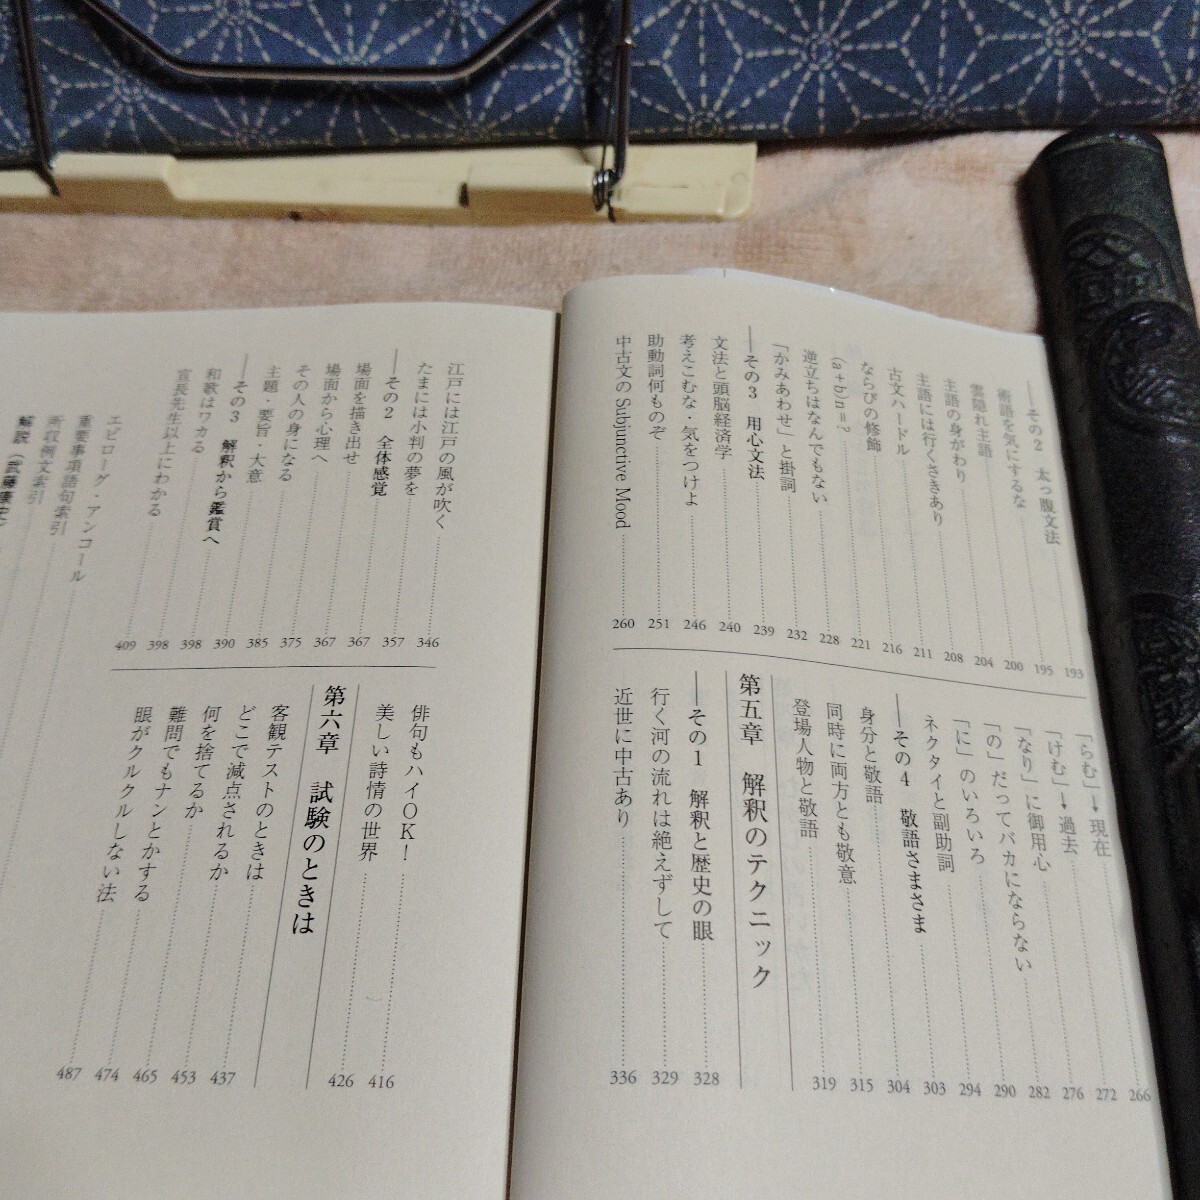 ——その2　太っ腹文法 193
術語を気にするな 195
雲隠れ主語 200
主語の身がわり 204
主語には行くさきあり 208
古文ハードル 211
ならびの修飾 216
(a+b)n=? 221
逆立ちはなんでもない 228
「かみあわせ」と掛詞 232
——その3　用心文法 239
文法と頭脳経済学 240
考えこむな・気をつけよ 246
助動詞何ものぞ 251
中古文の Subjunctive Mood 260
「らむ」→現在 266
「けむ」→過去 272
「なり」に御用心 276
「の」だってバカにならない 282
「に」のいろいろ 290
ネクタイと副助詞 294
——その4　敬語さまざま 303
身分と敬語 304
同時に両方とも敬意 315
登場人物と敬語 319
第五章　解釈のテクニック
——その1　解釈と歴史の眼 328
行く河の流れは絶えずして 329
近世に中古あり 336
江戸には江戸の風が吹く 346
たまには小判の夢を 357
——その2　全体感覚 367
場面を描き出せ 367
場面から心理へ 375
その人の身になる 385
主題・要旨・大意 390
——その3　解釈から鑑賞へ 398
和歌はワカる 398
宣長先生以上にわかる 409
俳句もハイOK！ 416
美しい詩情の世界 426
第六章　試験のときは
客観テストのときは 437
どこで減点されるか 453
何を捨てるか 465
難問でもナンとかする 474
眼がクルクルしない法 487
エピローグ・アンコール
重要事項語句索引
所収例文索引
解説（武藤康史）